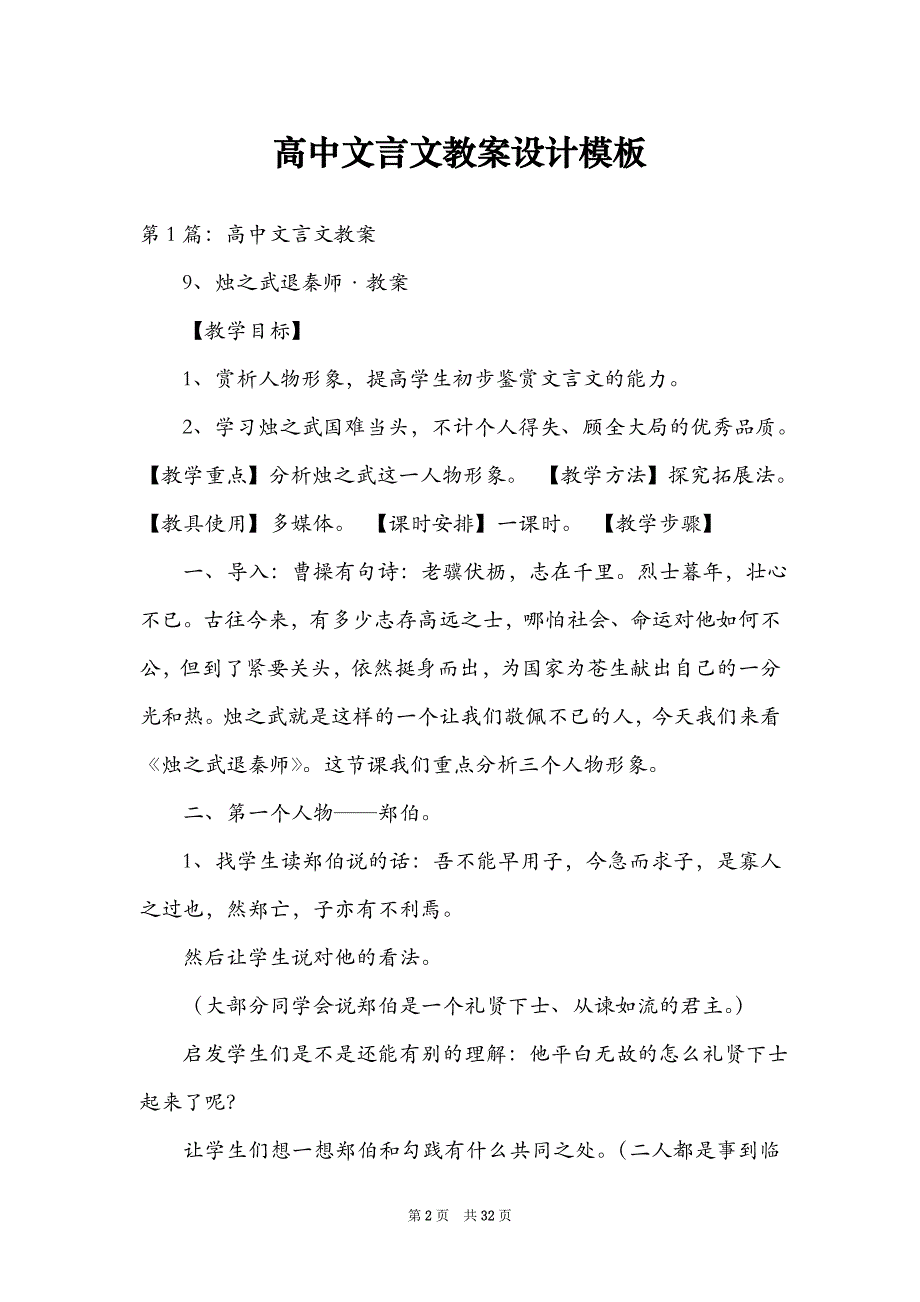 高中文言文教案设计模板
第 1 篇：高中文言文教案
9、烛之武退秦师·教案
【教学目标】
1、赏析人物形象，提高学生初步鉴赏文言文的能力。
2、学习烛之武国难当头，不计个人得失、顾全大局的优秀品质。
【教学重点】分析烛之武这一人物形象。 【教学方法】探究拓展法。
【教具使用】多媒体。 【课时安排】一课时。 【教学步骤】
一、导入：曹操有句诗：老骥伏枥，志在千里。烈士暮年，壮心
不已。古往今来，有多少志存高远之士，哪怕社会、命运对他如何不
公，但到了紧要关头，依然挺身而出，为国家为苍生献出自己的一分
光和热。烛之武就是这样的一个让我们敬佩不已的人，今天我们来看
《烛之武退秦师》。这节课我们重点分析三个人物形象。
二、第一个人物——郑伯。
1、找学生读郑伯说的话：吾不能早用子，今急而求子，是寡人
之过也，然郑亡，子亦有不利焉。
然后让学生说对他的看法。
（大部分同学会说郑伯是一个礼贤下士、从谏如流的君主。）
启发学生们是不是还能有别的理解：他平白无故的怎么礼贤下士
起来了呢?
让学生们想一想郑伯和勾践有什么共同之处。（二人都是事到临
第 2 页 共 32 页